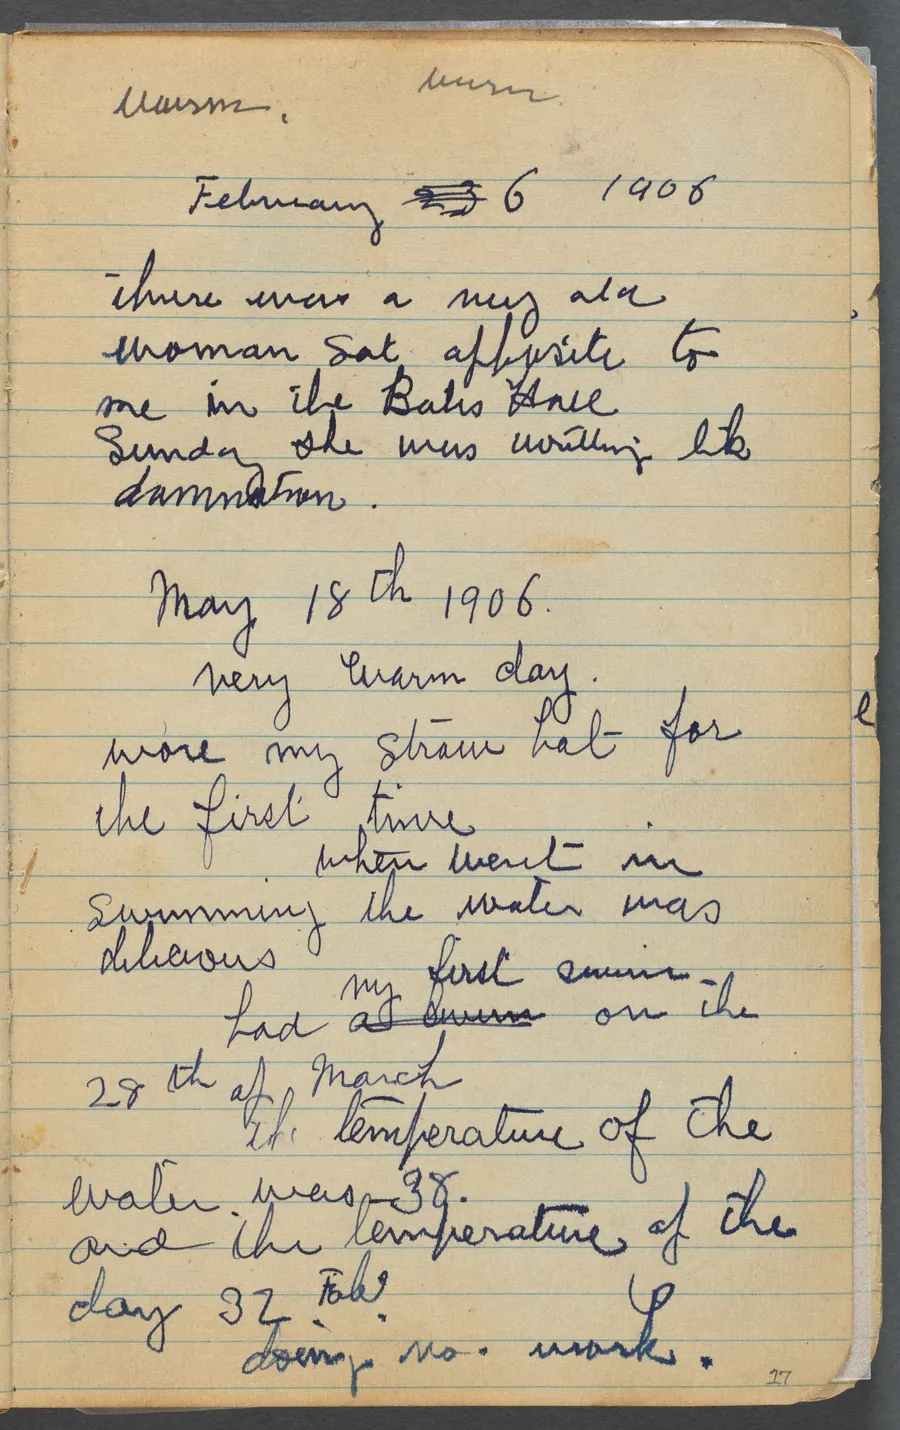 warm.
February 6 1906
there was a very old
woman sat opposite to
me in the Bates Hall
Sunday she was writting lik
damnation.
May 18th 1906.
very warm day.
wore my straw hat for
the first time
when went in
swimming the water was
delicious
my first swim
had a swim on the
28th of March
the temperature of the
water was 38.
and the temperature of the
day 32 Fah.
doing no. work.
17